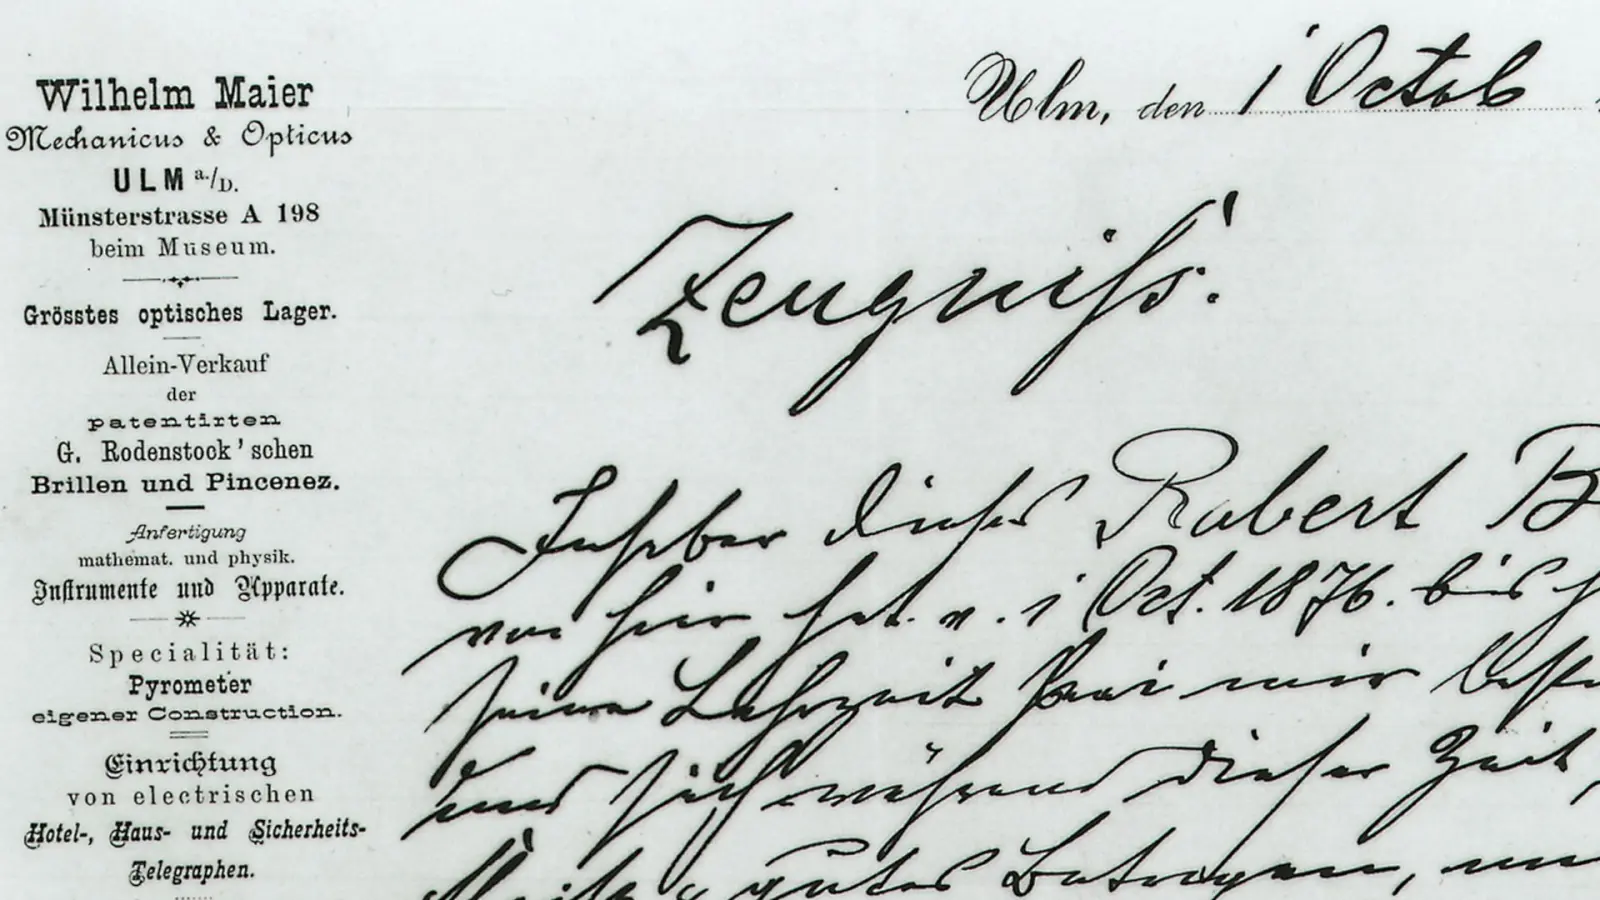 Wilhelm Maier
Mechanicus & Opticus
ULM a./D.
Münsterstrasse A 198
beim Museum.
Grösstes optisches Lager.
Allein-Verkauf
der
patentirten
G. Rodenstock'schen
Brillen und Pincenez.
Anfertigung
mathemat. und physik.
Instrumente und Apparate.
Specialität:
Pyrometer
eigener Construction.
Einrichtung
von electrischen
Hotel-, Haus- und Sicherheits-
Telegraphen.
Ulm, den 1 Octob
Zeugniß.
Inhaber dieses Robert B
von hier hat v. 1 Oct. 1876. bis
seine Lehrzeit bei mir
und sich während dieser Zeit,
gutes Betragen,